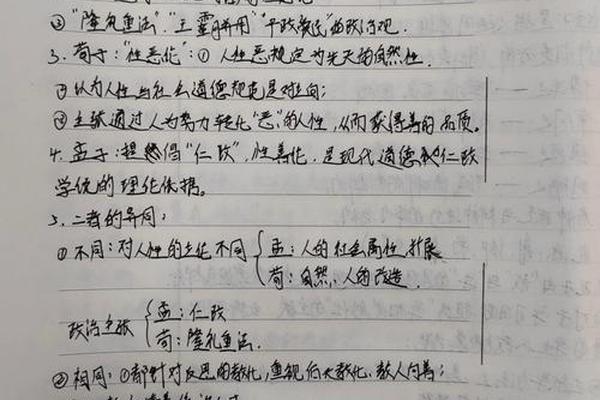 ③"隆礼重法"."王霸并用""平政教化"的政治观.
3. 荀子:"性恶论":① 人性恶规定为先天的自然性.
② 认为人性与社会道德规范是对立的;
③ 主张通过人为努力转化"恶"的人性,从而获得善的品质。
4. 孟子:提倡"仁政",性善论.是现代道德和仁政
学统的理论依据。
5. 二者的异同:
① 不同:对人性的立论不同
孟:人的社会属性,扩展
荀:自然,人的改造.
政治主张
孟:仁政
荀:隆礼重法.
② 相同:①都针对反思的教化,重视后天教化,教人向善;